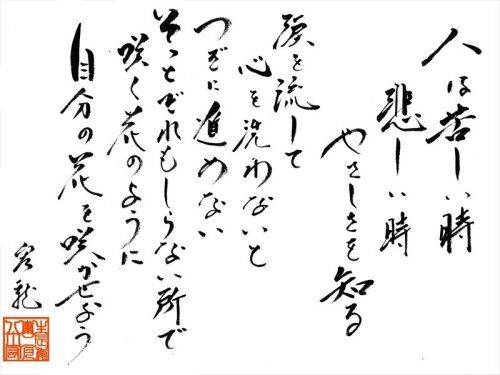 人は苦しい時
悲しい時
やさしさを知る
涙を流して
心を洗わないと
つぎに進めない
そっとだれもしらない所で
咲く花のように
自分の花を咲かせよう